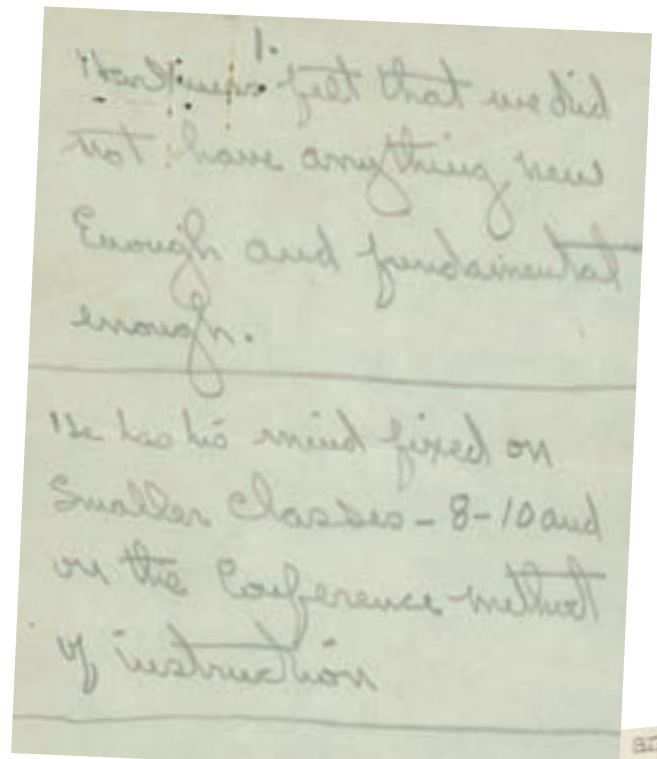 1.
Harkness felt that we did
not have anything new
Enough and fundamental
enough.
He has his mind fixed on
Smaller Classes - 8-10 and
on the Conference method
of instruction